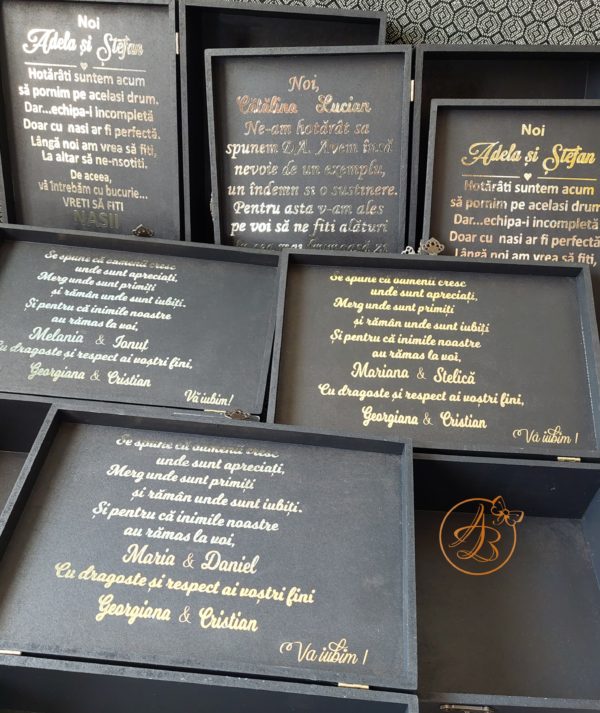 Noi
Adela și Ștefan
Hotărâti suntem acum
să pornim pe acelasi drum.
Dar...echipa-i incompletă
Doar cu nasi ar fi perfectă.
Lângă noi am vrea să fiti,
La altar să ne-nsotiti.
De aceea,
vă întrebăm cu bucurie...
VRETI SĂ FITI
NASII
Noi,
Cătălina Lucian
Ne-am hotărât sa
spunem DA. Avem însă
nevoie de un exemplu,
un îndemn si o sustinere.
Pentru asta v-am ales
pe voi să ne fiti alături
Noi
Adela și Ștefan
Hotărâti suntem acum
să pornim pe acelasi drum.
Dar...echipa-i incompletă
Doar cu nasi ar fi perfectă
Lângă noi am vrea să fiti,
Se spune că oamenii cresc
unde sunt apreciați,
Merg unde sunt primiți
și rămân unde sunt iubiți.
Și pentru că inimile noastre
au rămas la voi,
Melania & Ionuț
Cu dragoste și respect ai voștri fini,
Georgiana & Cristian
Vă iubim!
Se spune că oamenii cresc
unde sunt apreciați,
Merg unde sunt primiți
și rămân unde sunt iubiți
Și pentru că inimile noastre
au rămas la voi,
Mariana & Stelică
Cu dragoste și respect ai voștri fini,
Georgiana & Cristian
Va iubim !
Se spune că oamenii cresc
unde sunt apreciați,
Merg unde sunt primiți
și rămân unde sunt iubiți.
Și pentru că inimile noastre
au rămas la voi,
Maria & Daniel
Cu dragoste și respect ai voștri fini
Georgiana & Cristian
Va iubim !
AB